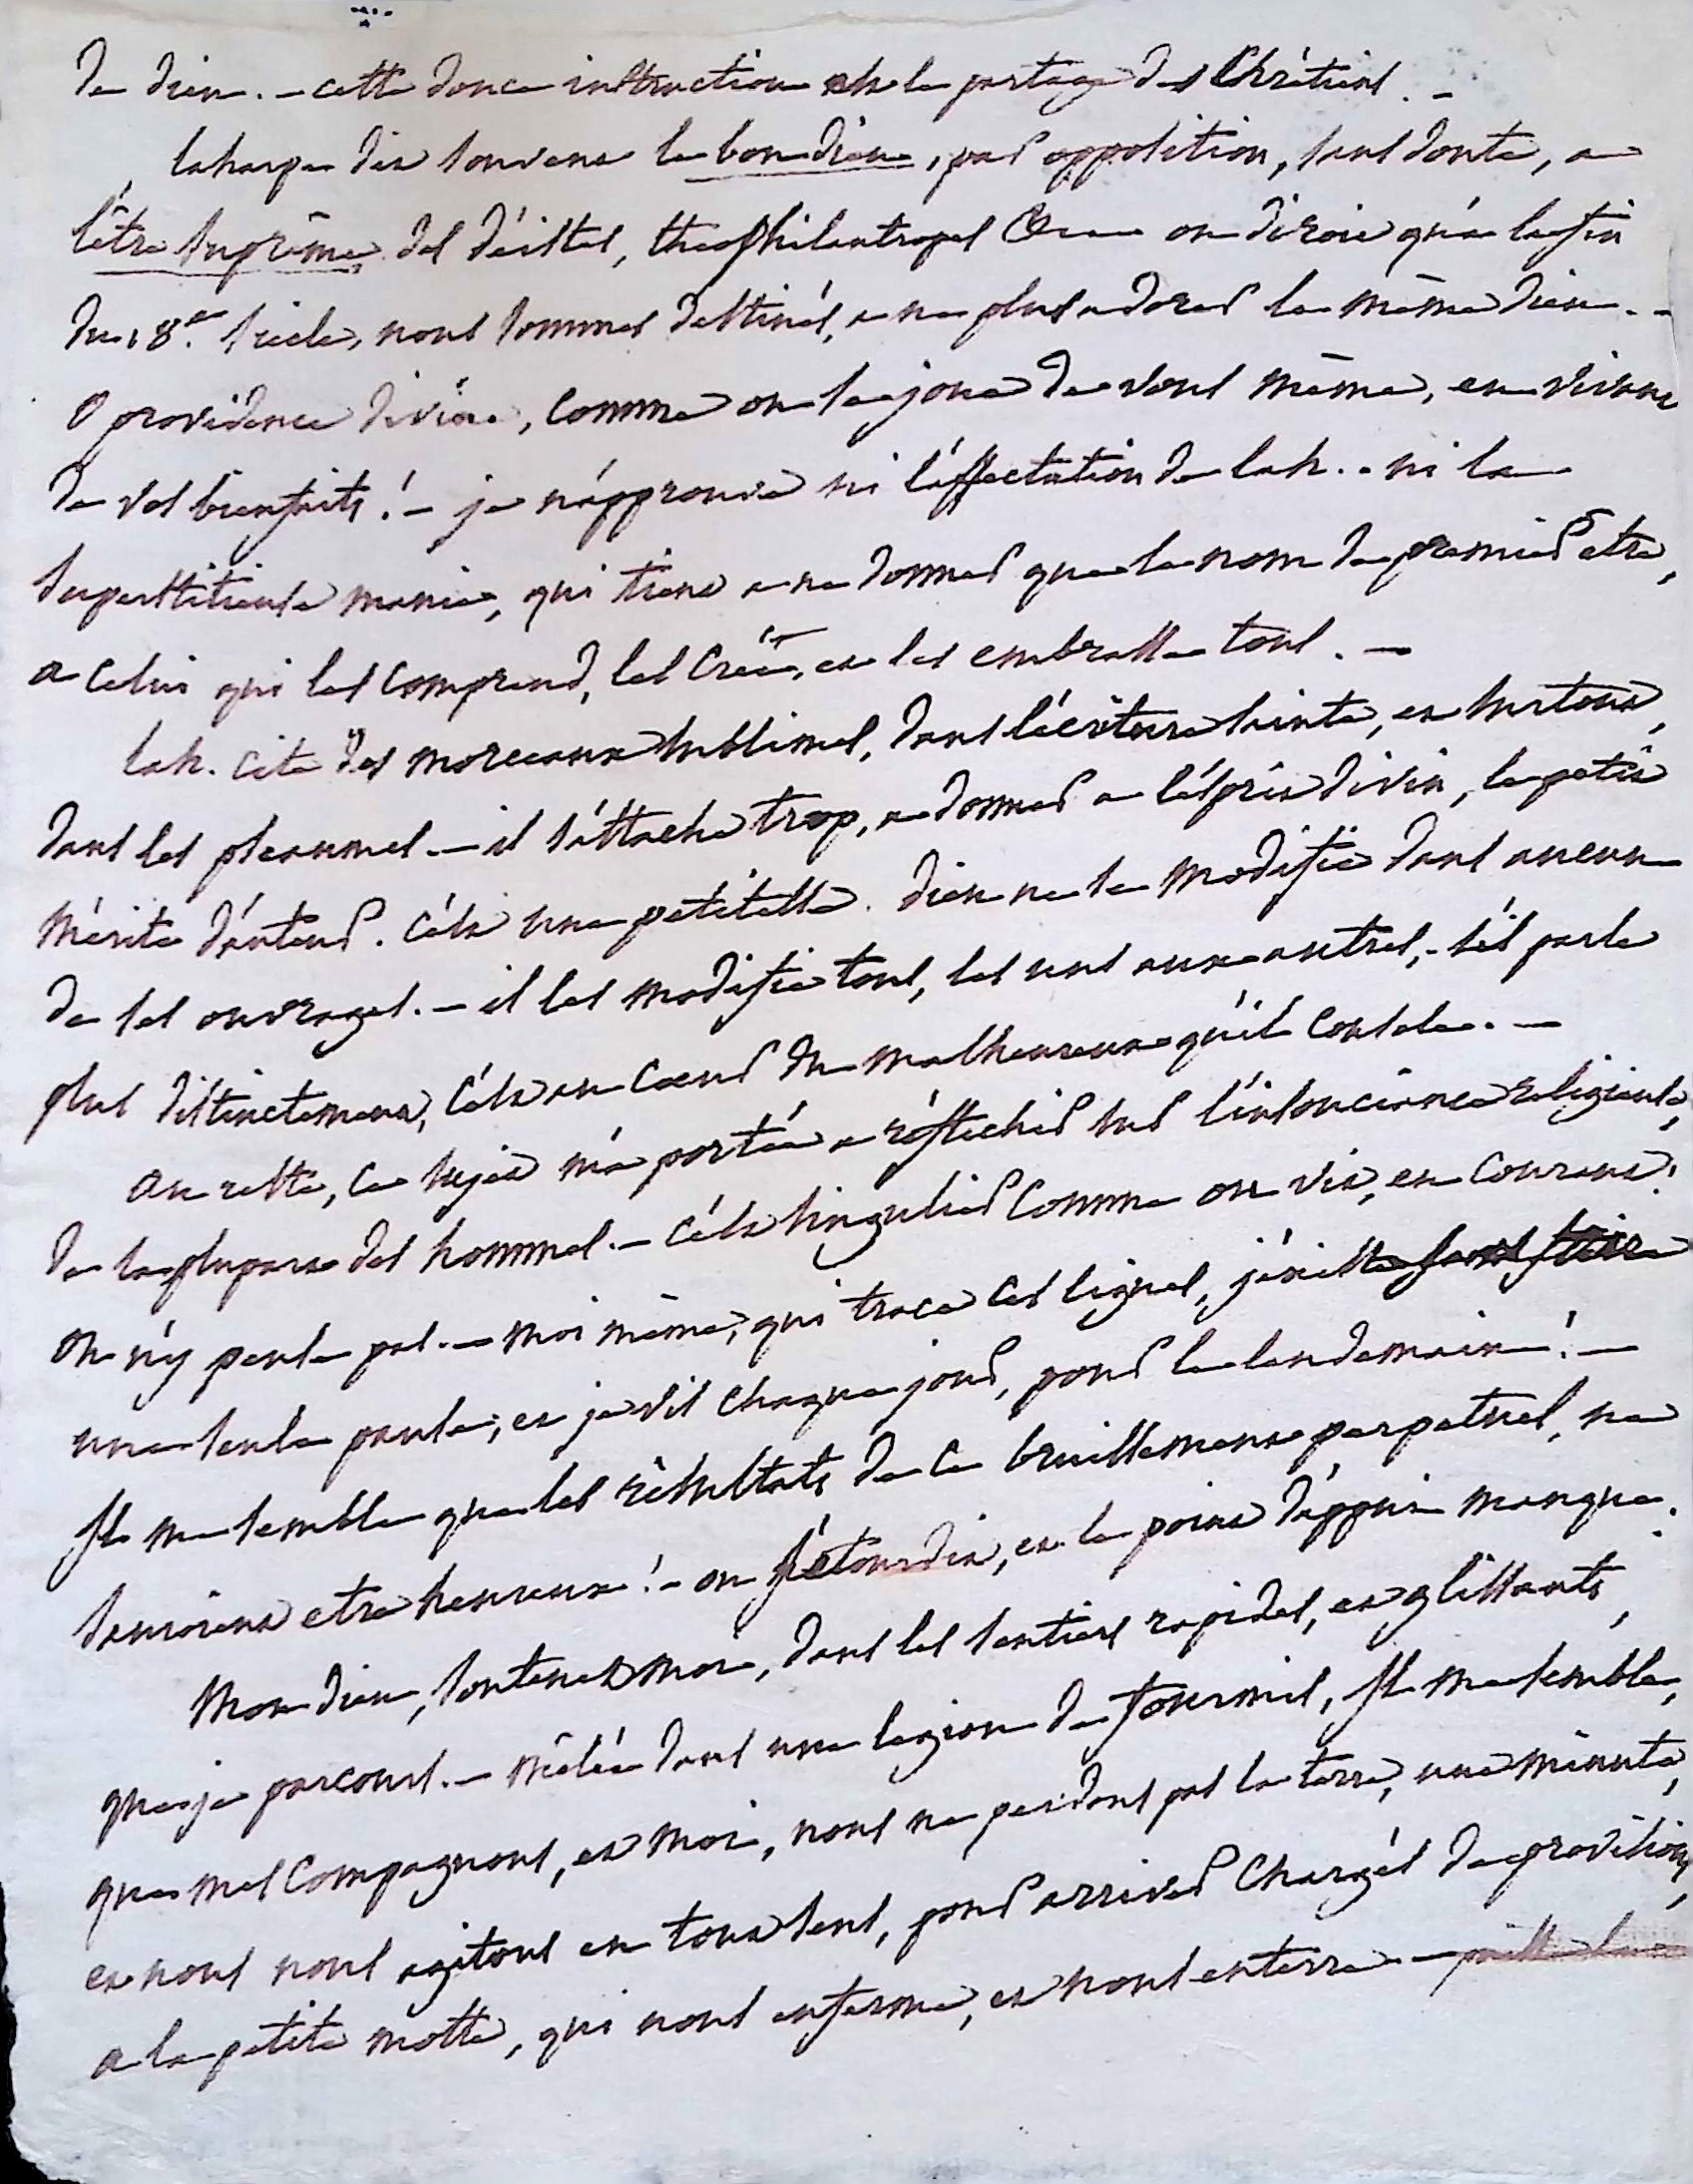 de dieu. — cette douce instruction est le partage des Chrétiens. —
laharpe dit souvent le bon dieu, par opposition, sans doute, a
l'être suprême des déistes, theophilantropes &c. — on diroit qu'a la fin
du 18.e siècle, nous sommes destinés, a ne plus adorer le même dieu. —
O providence divine, comme on se joue de vous même, en vivant
de vos bienfaits ! — je n'approuve ni l'affectation de lah. — ni la
superstitieuse manie, qui tient a ne donner que le nom de premier etre,
a celui qui les comprend, les créé, et les embrasse tous. —
lah. cite des morceaux sublimes, dans l'écriture sainte, et surtout,
dans les pseaumes. — il s'attache trop, a donner a l'esprit divin, le petit
mérite d'auteur. c'est une petitesse. dieu ne se modifie dans aucun
de ses ouvrages. — il les modifie tous, les uns aux autres, — s'il parle
plus distinctement, c'est au coeur du malheureux qu'il console. —
au reste, ce sujet m'a portée a réfléchir sur l'insouciance religieuse,
de la plupart des hommes. — c'est singulier comme on vit, en courant !
on n'y pense pas. — moi même, qui trace ces lignes, j'existe sans faire
une seule pause, et je vis chaque jour, pour le lendemain ! —
Il me semble que les résultats de ce bruissement perpetuel, ne
sauroient etre heureux ! — on s'étourdit, et le point d'appui manque.
Mon dieu, soutenez moi, dans les sentiers rapides, et glissants,
que je parcours. — mêlée dans une legion de fourmis, Il me semble,
que mes compagnons, et moi, nous ne perdons pas la terre, une minute,
et nous nous agitons en tout sens, pour arriver chargés de provisions,
a la petite motte, qui nous enferme, et nous enterre —